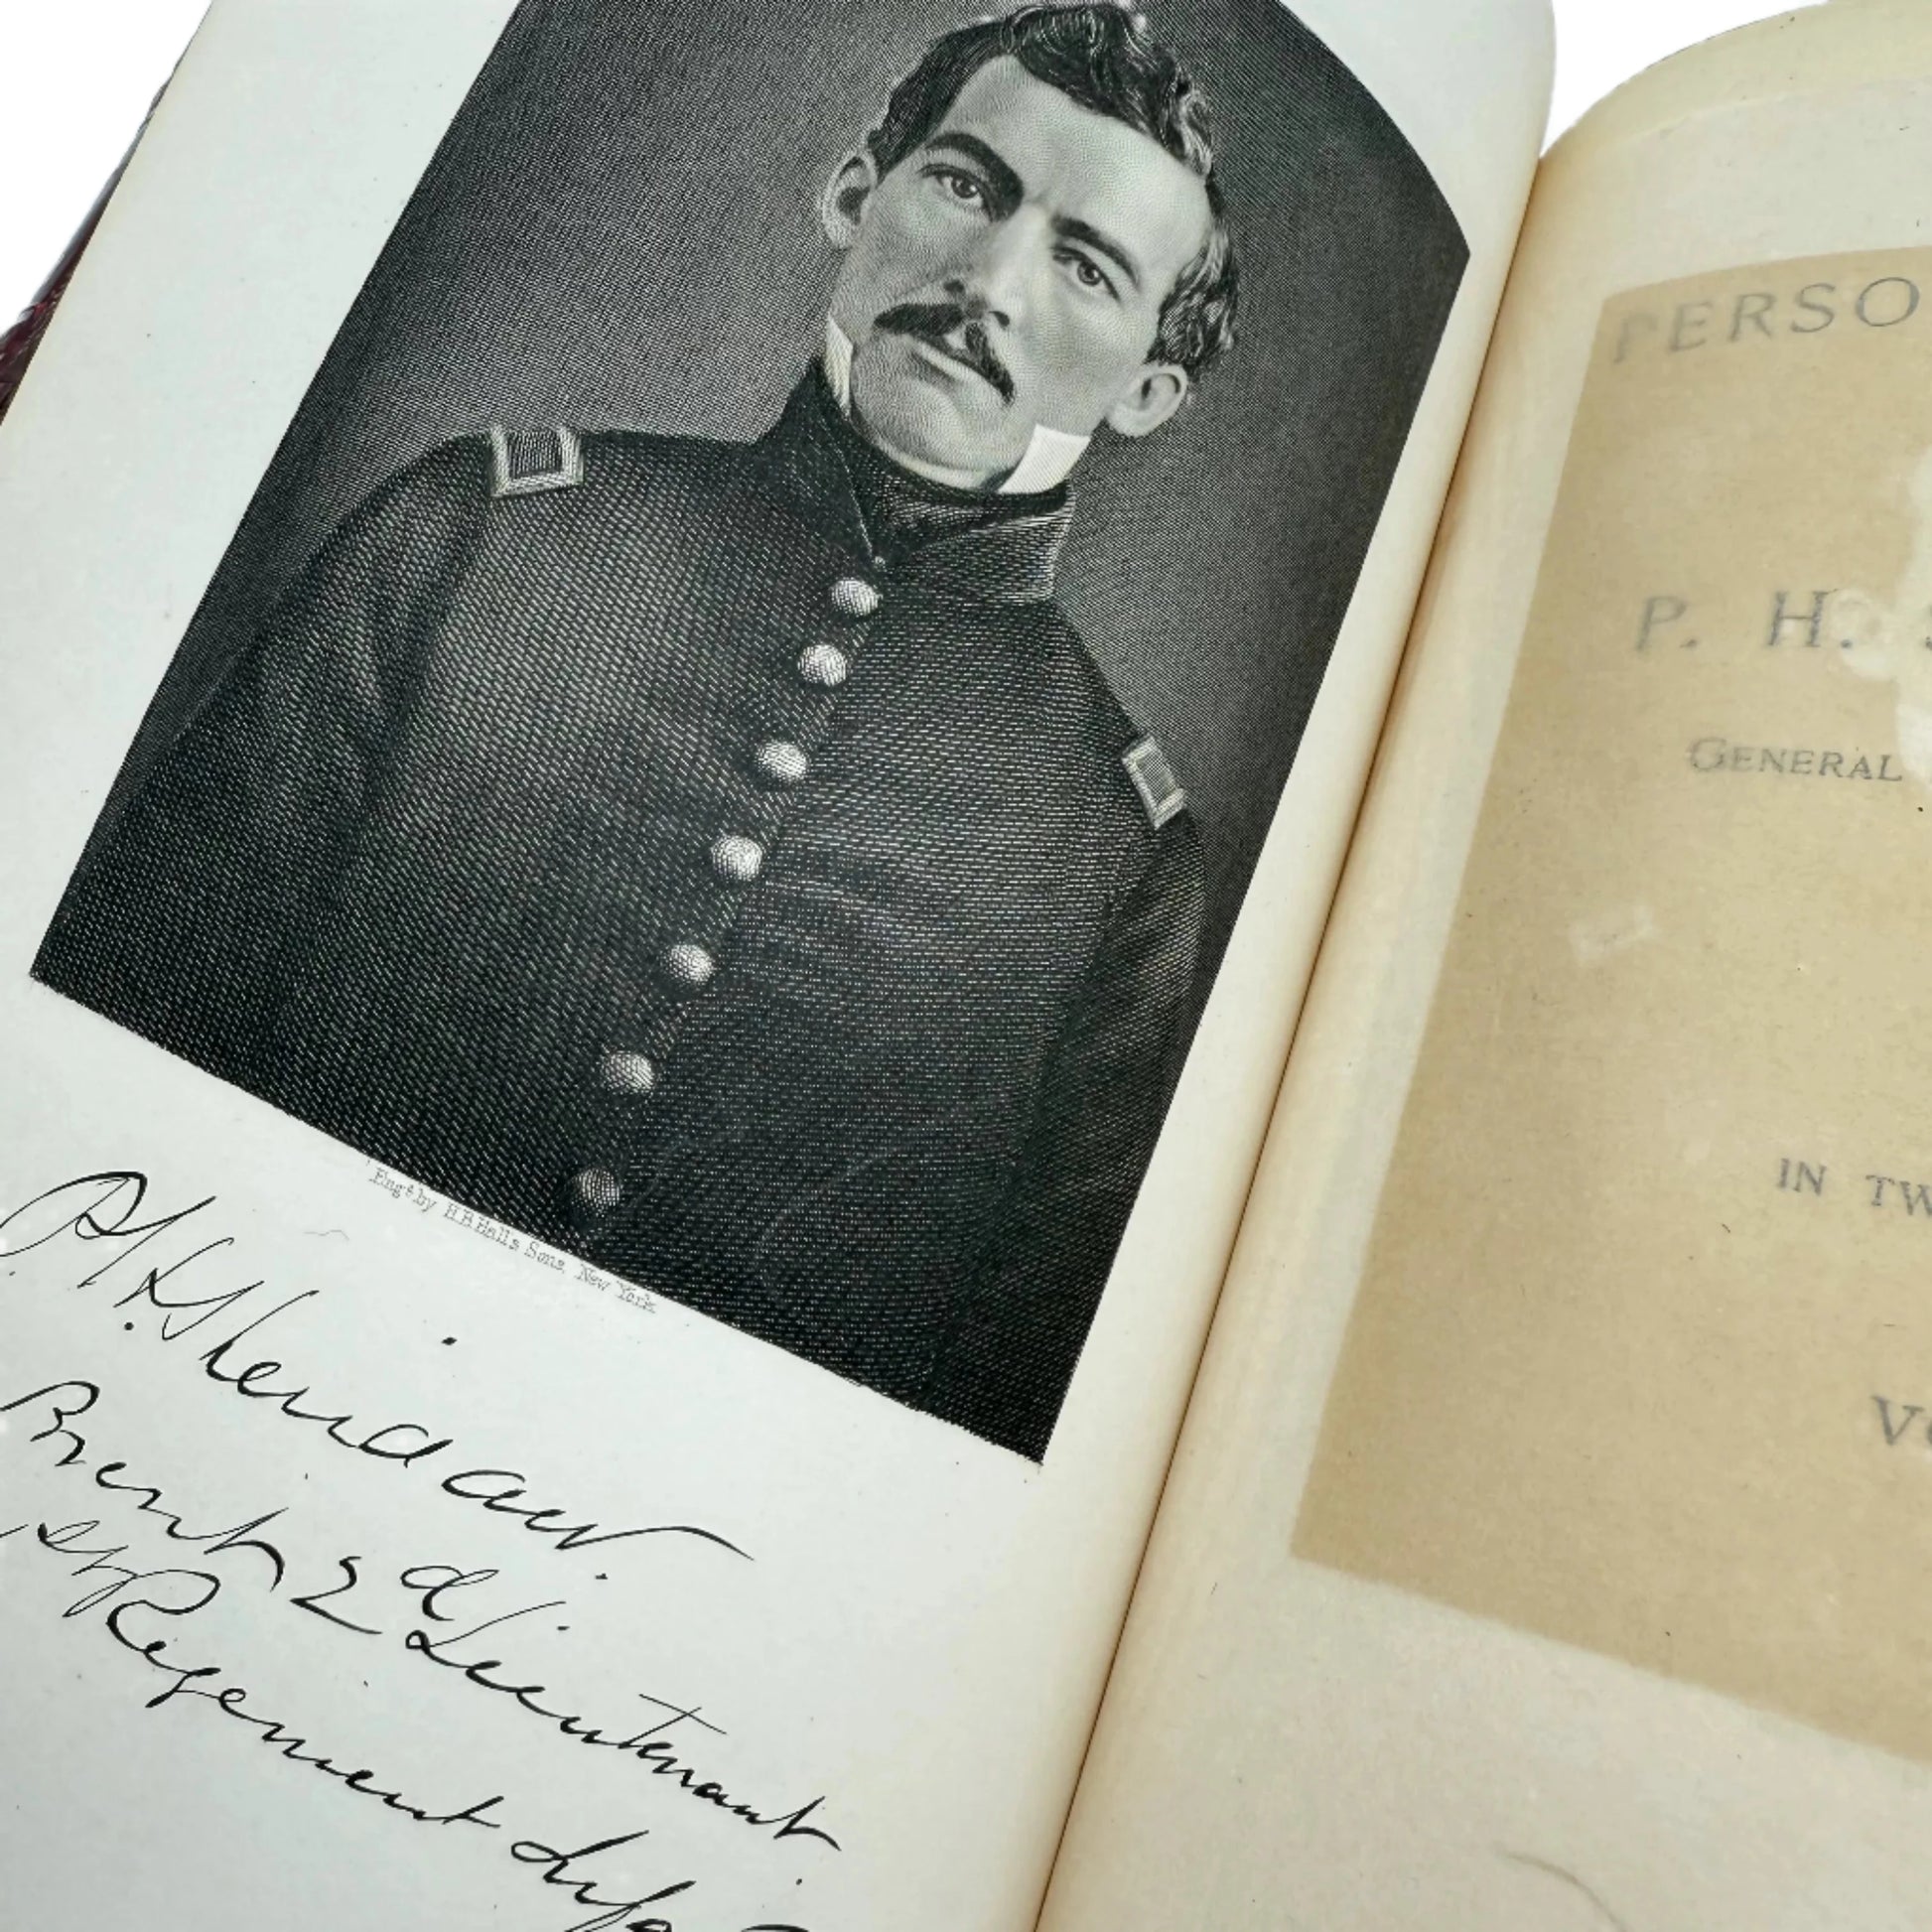 Engd by H.B.Halls Sons, New York.
P.H. Sheridan
Brevet 2d Lieutenant
1st Regement Infa
PERSO
P. H. S
GENERAL
IN TW
Vo